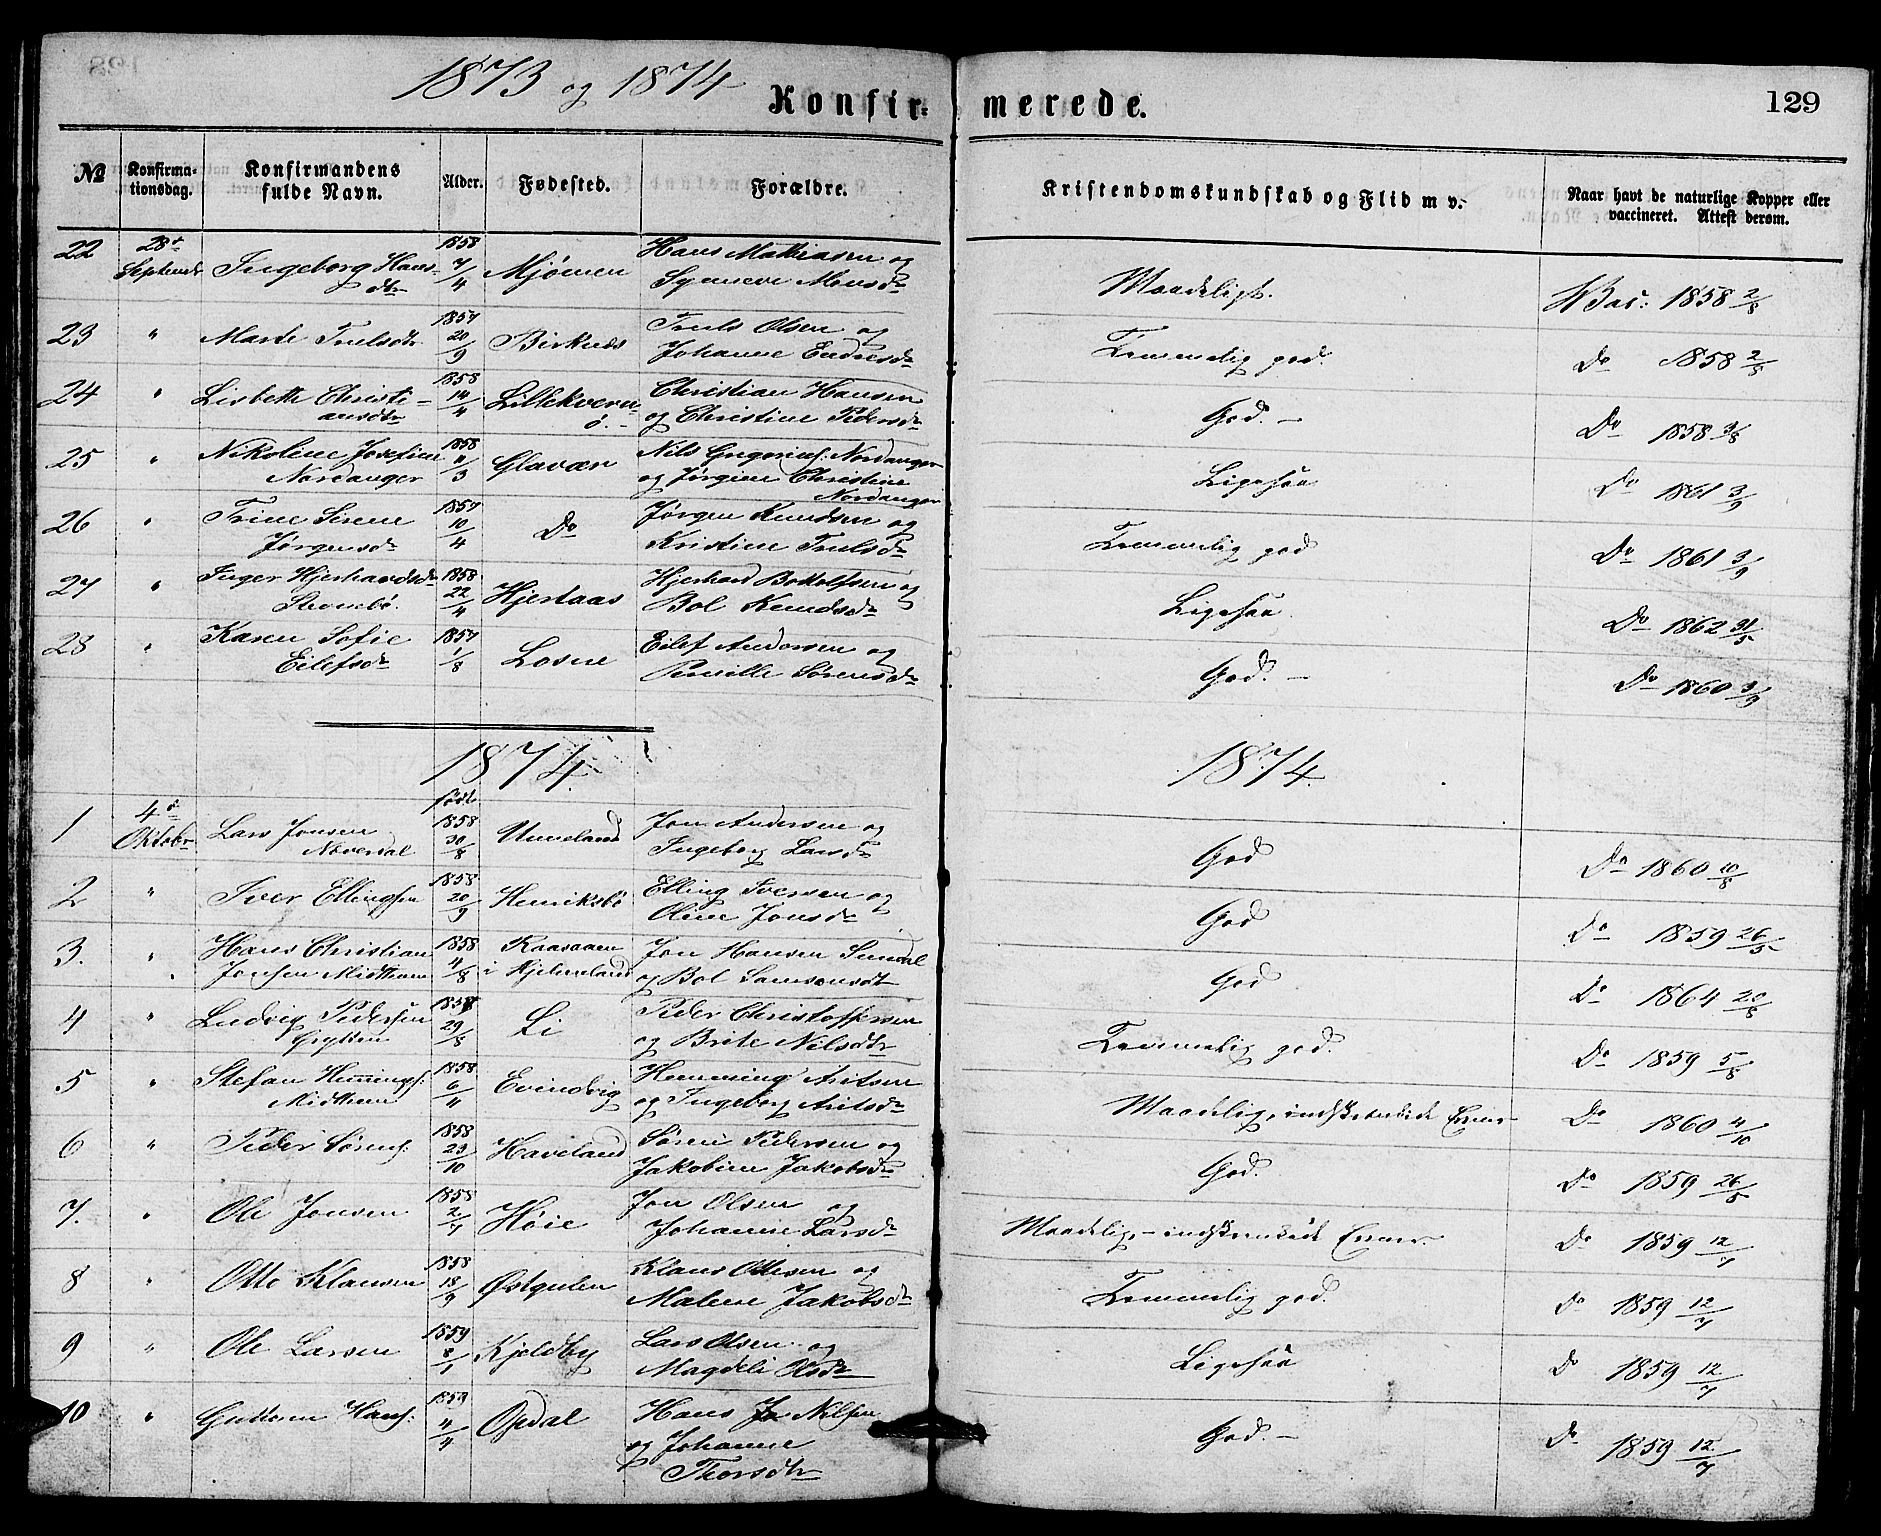 1873 og 1874
Konfirmerede.
129
№ Konfirmationsdag. Konfirmandens fulde Navn. Alder. Fødested. Forældre. Kristendomskundskab og Flid m v. Naar havt de naturlige Kopper eller vaccineret. Attest derom.
22 28de Septembr Ingeborg Hansdtr 1858 7/4 Mjømen Hans Mathiasen og Synneve Monsdr Maadeligt. Vac: 1858 2/8
23 " Marte Trulsdtr 1857 20/9 Birknes Truls Olsen og Johanne Endresdr Temmelig god. Do 1858 2/8
24 " Lisbeth Christiansdtr 1858 14/4 Lillekvernø. Christian Hansen og Christine Pedersdr God. Do 1858 3/8
25 " Nikoline Josefine Nordanger 1858 11/3 Glavær Nils Gregorius: Nordanger og Jørgine Christine Nordanger Ligesaa Do 1861 3/9
26 " Trine Serene Jørgensdr 1857 10/4 Do Jørgen Knudsen og Kristine Trulsdr Temmelig god Do 1861 3/9
27 " Inger Hjerhardsdr 1858 22/4 Hjertaas Hjerhard Bottolfsen og Bol Knudsdr Ligesaa. Do 1862 31/5
28 " Karen Sofie Eilefsdr 1857 1/8 Losne Eilef Andersen og Pernille Sørensdr God. Do 1860 3/9
1874. 1874.
født
1 4de Oktobr Lars Jonsen Nøverdal 1858 30/8 Unneland Jon Andersen og Ingeborg Larsdr God Do 1860 10/8
2 " Iver Ellingsen 1858 20/9 Henriksbø Elling Iversen og Oline Jonsdr God Do 1859 26/5
3. " Hans Christian Jonsen Midttun 1858 4/8 i Hjelmeland Jon Hansen og Bol Samsonsdt God Do 1864 20/8
4 " Ludvig Pedersen Grytten 1858 29/8 Li Peder Christoffersen og Brite Nilsdtr Temmelig god. Do 1859 5/8
5 " Stefan Hennings: Midttun 1858 6/11 Evindvig Hemming Antsen og Ingeborg Antsdr Maadelig, indskrænkede Evner Do 1860 4/10
6 " Peder Sørens: 1858 23/10 Haveland Søren Pedersen og Jakobine Jakobsdr God. Do 1859 26/5
7. " Ole Jonsen 1858 2/7 Høie Jon Olsen og Johanne Larsdr Maadelig, – indskrænkede Evner. Do 1859 12/7
8 " Otto Klausen 1858 18/9 Østgulen Klaus Ottesen og Malene Jakobsdr Temmelig god. Do 1859 12/7
9 " Ole Larsen 1859 8/1 Kjeldby Lars Olsen og Magdeli Olsdr Ligesaa Do 1859 12/7
10 " Guttorm Hans: 1859 4/4 Opdal Hans Nilsen og Johanne Thorsdtr God. – Do 1859 12/7